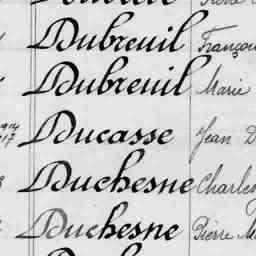 Dubreuil François
Dubreuil Marie
Ducasse Jean D
Duchesne Charles
Duchesne Pierre M